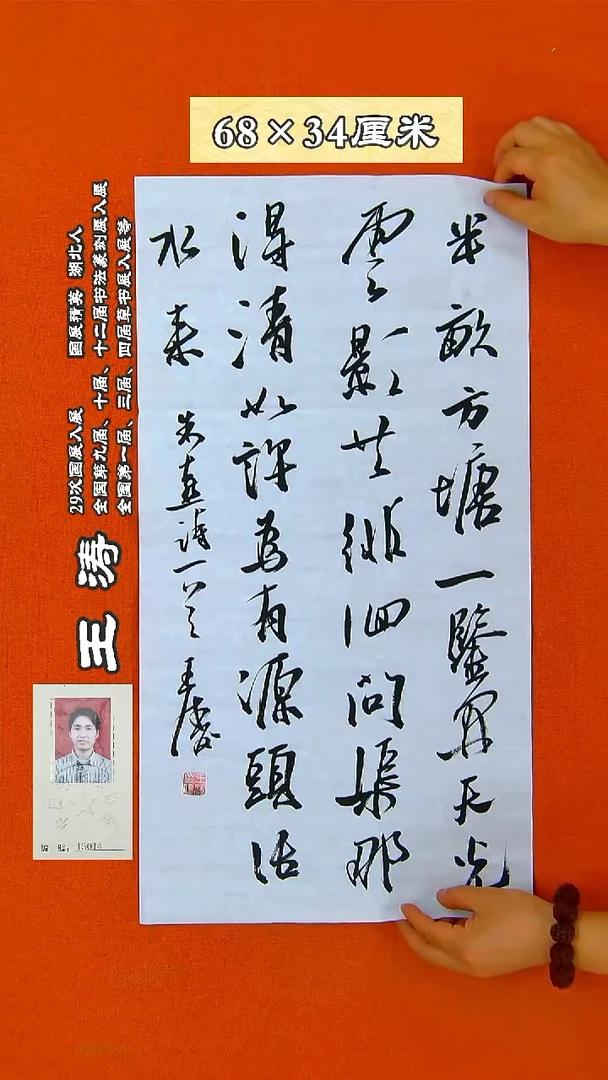 68×34厘米
半畝方塘一鑒開天光
雲影共徘徊問渠那
得清如許為有源頭活
水來 朱熹詩一首 王濤
王涛
29次国展入展 国展精英 湖北人
全国第九届、十届、十二届书法篆刻展入展
全国第一届、三届、四届草书展入展等
编 号：